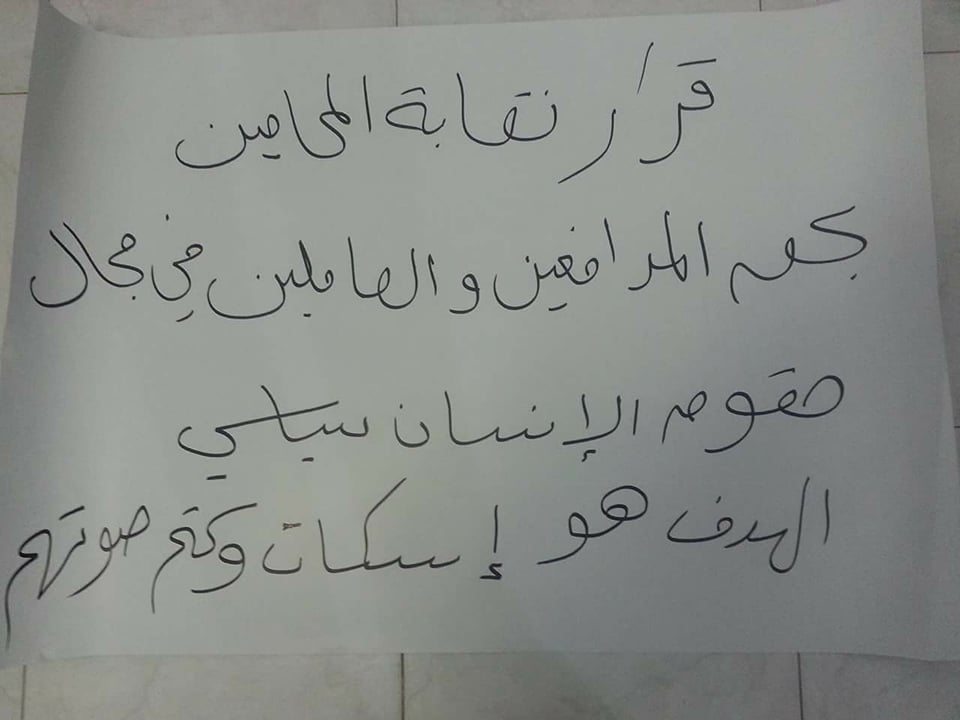 قرار نقابة المحامين
بحق المدافعين والعاملين في مجال
حقوق الإنسان سياسي
الهدف هو إسكات وكتم صوتهم